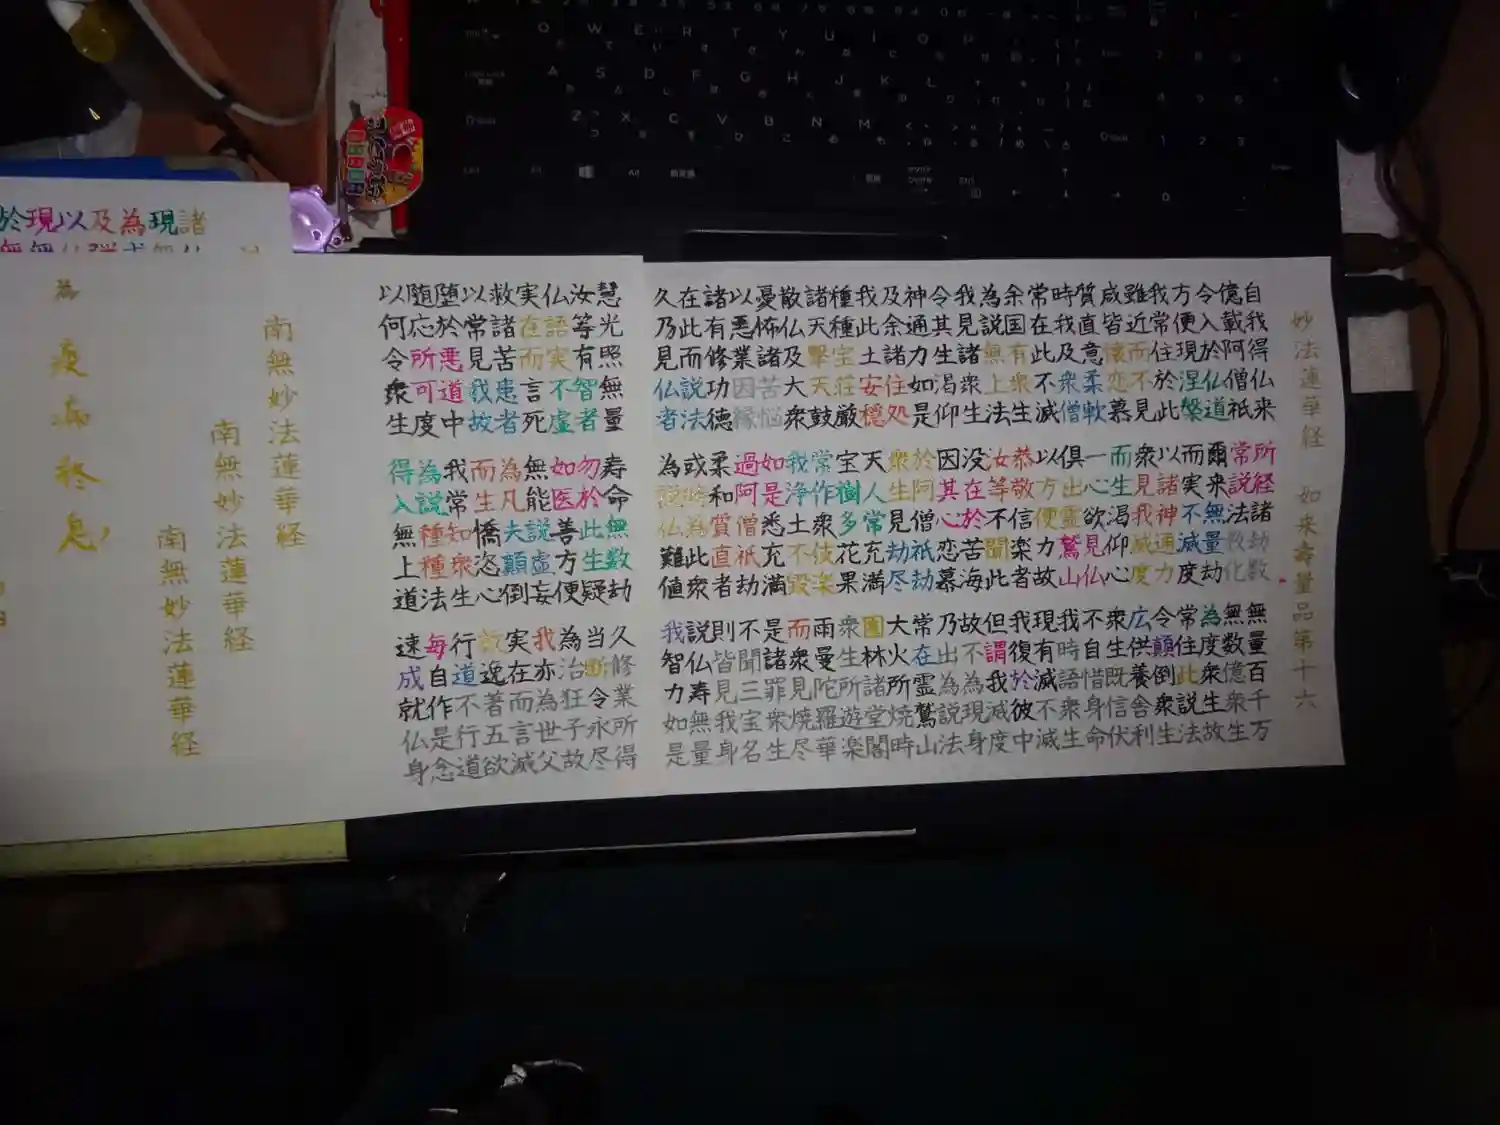 妙法蓮華経 如来寿量品第十六
自我得仏来 所経諸劫数 無量百千万
億載阿僧祇 常説法教化 無数億衆生
令入於仏道 爾来無量劫 為度衆生故
方便現涅槃 而実不滅度 常住此説法
我常住於此 以諸神通力 令顛倒衆生
雖近而不見 衆見我滅度 広供養舎利
咸皆懐恋慕 而生渇仰心 衆生既信伏
質直意柔軟 一心欲見仏 不自惜身命
時我及衆僧 俱出霊鷲山 我時語衆生
常在此不滅 以方便力故 現有滅不滅
余国有衆生 恭敬信楽者 我復於彼中
為説無上法 汝等不聞此 但謂我滅度
我見諸衆生 没在於苦海 故不為現身
令其生渇仰 因其心恋慕 乃出為説法
神通力如是 於阿僧祇劫 常在霊鷲山
及余諸住処 衆生見劫尽 大火所焼時
我此土安穏 天人常充満 園林諸堂閣
種種宝荘厳 宝樹多花果 衆生所遊楽
諸天撃天鼓 常作衆伎楽 雨曼陀羅華
散仏及大衆 我浄土不毀 而衆見焼尽
憂怖諸苦悩 如是悉充満 是諸罪衆生
以悪業因縁 過阿僧祇劫 不聞三宝名
諸有修功徳 柔和質直者 則皆見我身
在此而説法 或時為此衆 説仏寿無量
久乃見仏者 為説仏難値 我智力如是
慧光照無量 寿命無数劫 久修業所得
汝等有智者 勿於此生疑 当断令永尽
仏語実不虚 如医善方便 為治狂子故
実在而言死 無能説虚妄 我亦為世父
救諸苦患者 為凡夫顛倒 実在而言滅
以常見我故 而生憍恣心 放逸著五欲
堕於悪道中 我常知衆生 行道不行道
随応所可度 為説種種法 毎自作是念
以何令衆生 得入無上道 速成就仏身
南無妙法蓮華経
南無妙法蓮華経
南無妙法蓮華経
為 疫病終息
諸現為及以現於